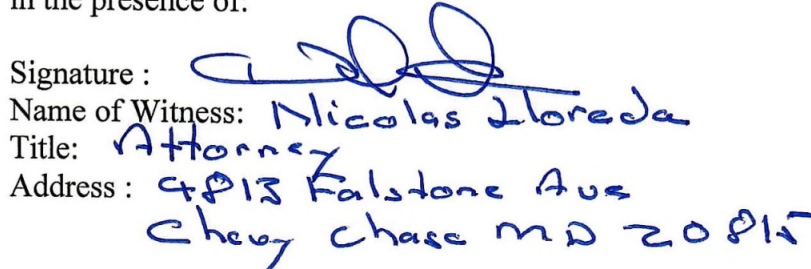 in the presence of:
Signature :
Name of Witness: Nicolas Lloreda
Title: Attorney
Address : 4813 Falstone Ave
Chevy Chase MD 20815